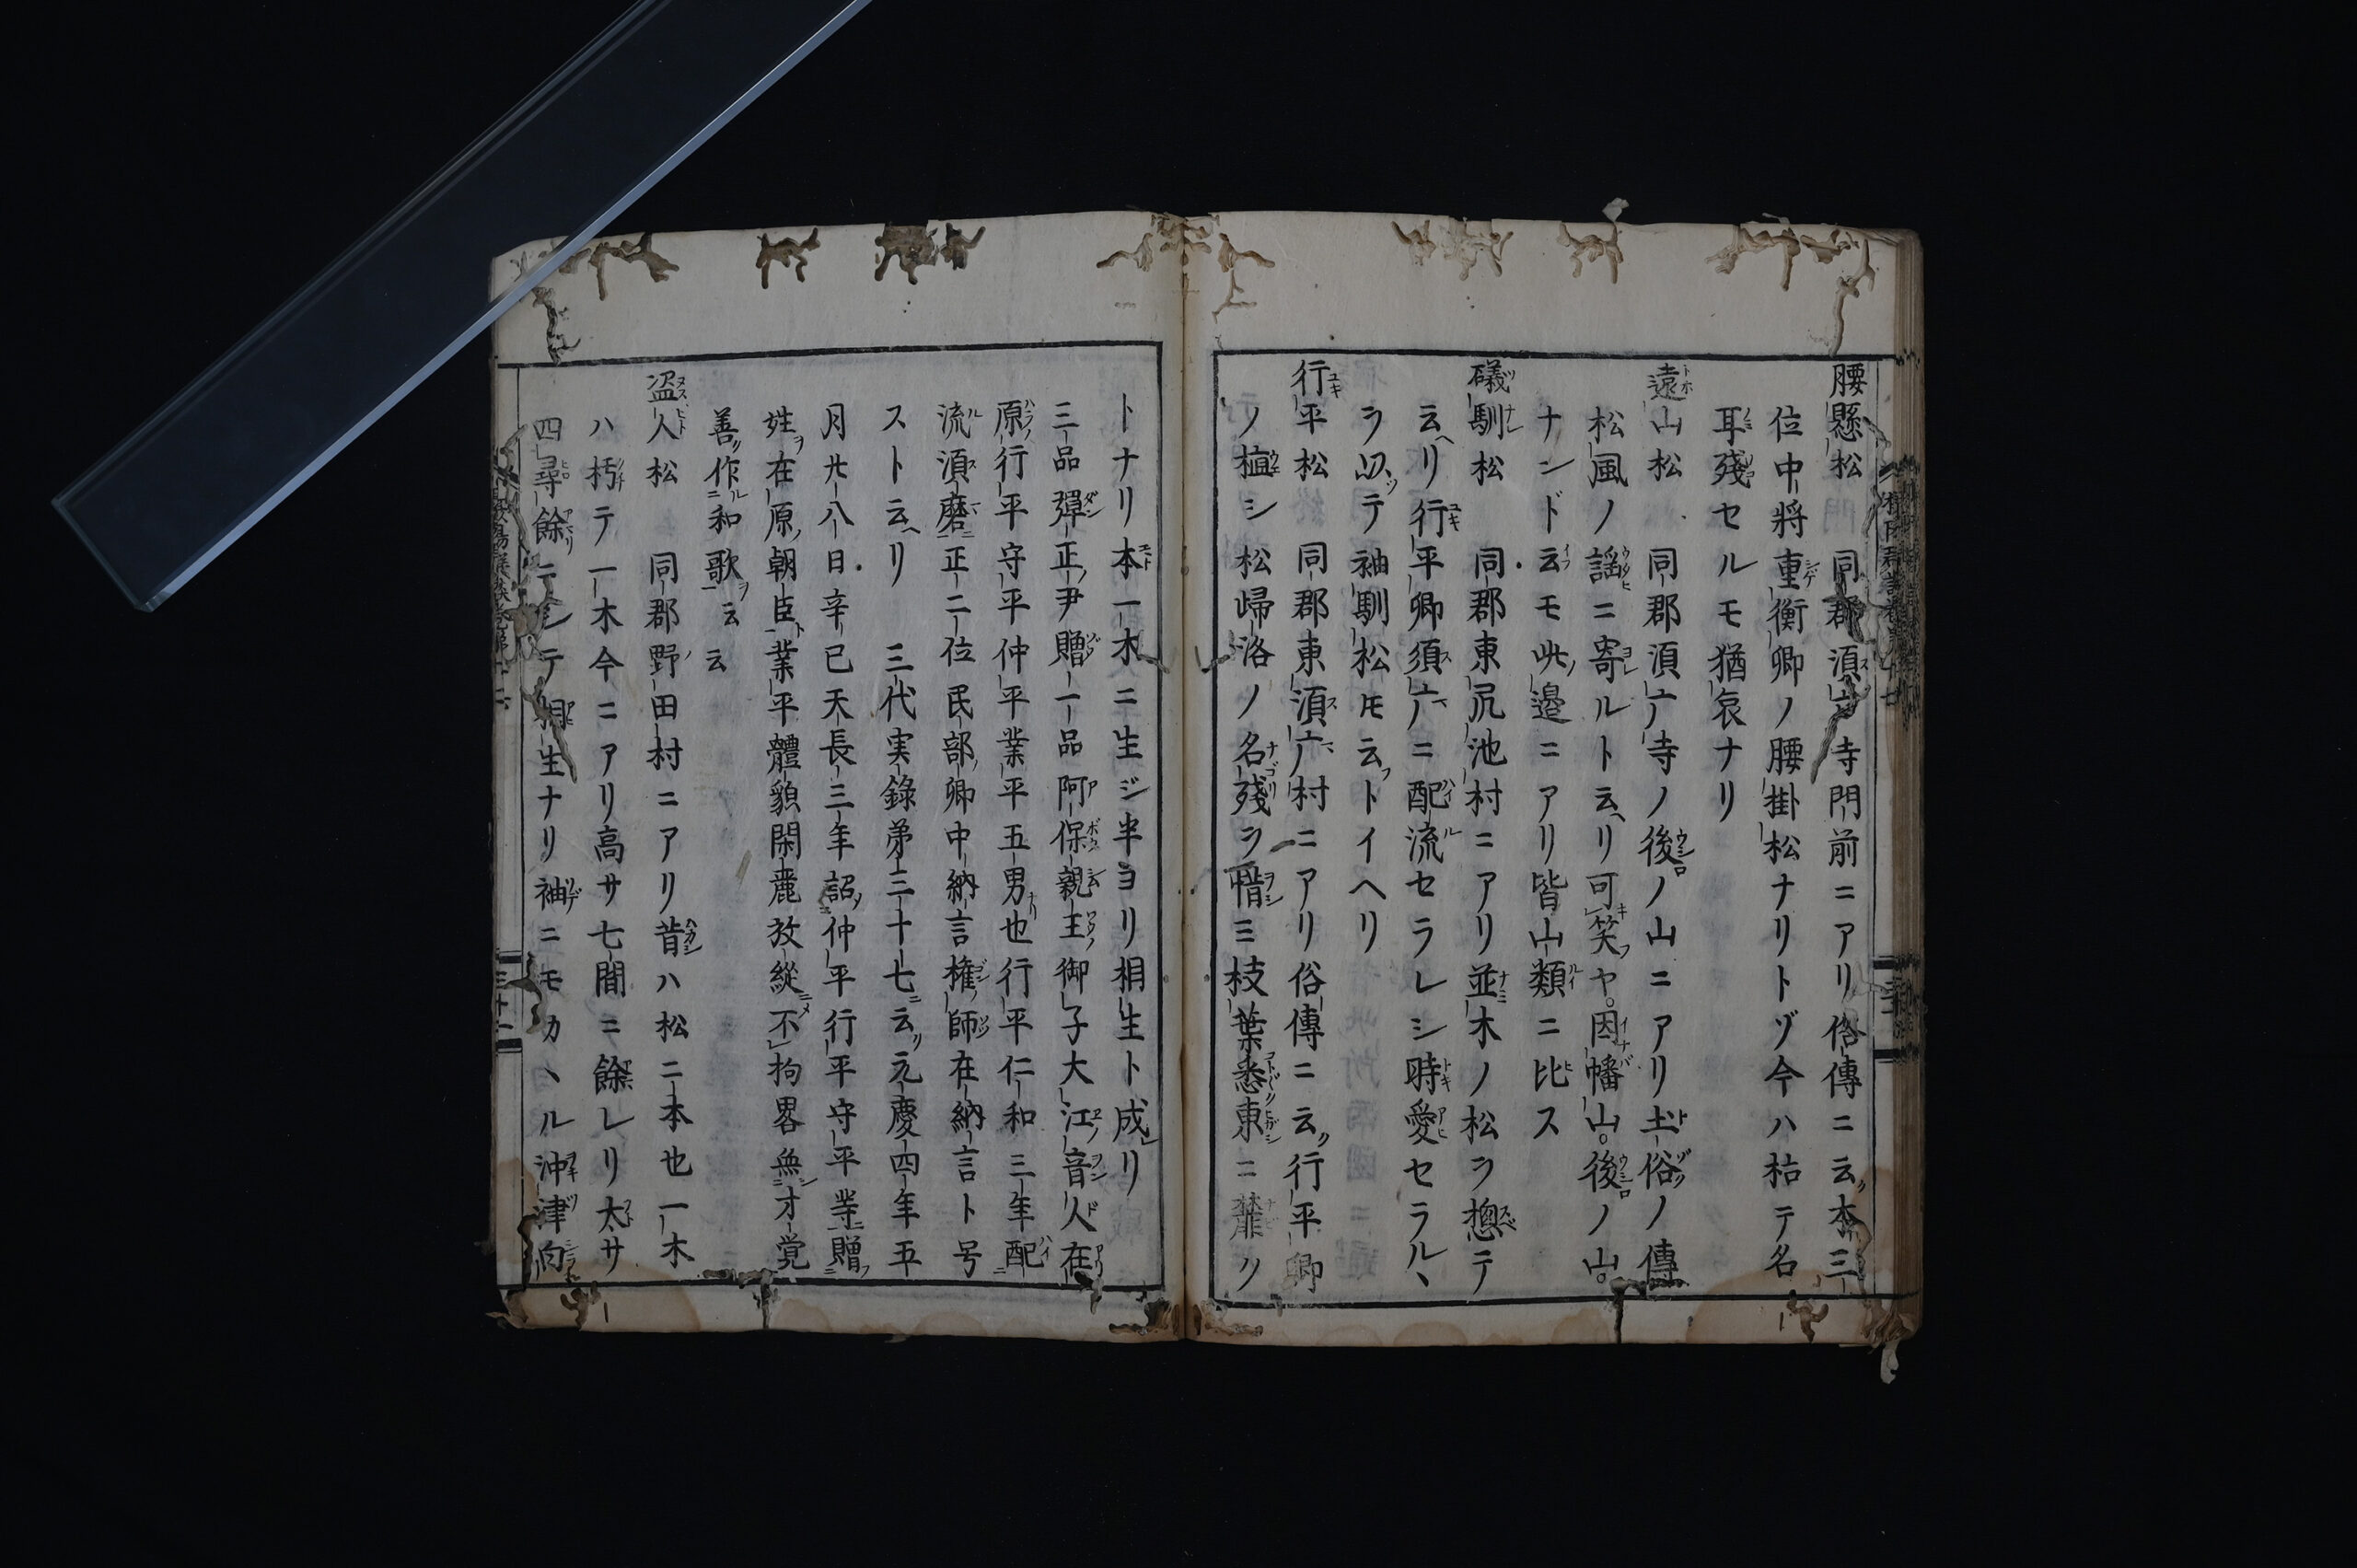 腰懸松　同郡須广寺門前ニアリ俗傳ニ云本三
位中将重衡卿ノ腰掛松ナリトゾ今ハ枯テ名
耳残セルモ猶哀ナリ
遠山松　同郡須广寺ノ後ノ山ニアリ土俗ノ傳
松風ノ謡ニ寄ルト云リ可笑ヤ。因幡山。後ノ山。
ナンド云モ此邉ニアリ皆山類ニ比ス
礒馴松　同郡東尻池村ニアリ並木ノ松ヲ摠テ
云リ行平卿須广ニ配流セラレシ時愛セラル丶
ヲ以テ袖馴松トモ云トイヘリ
行平松　同郡東須广村ニアリ俗傳ニ云行平卿
ノ植シ松歸洛ノ名残ヲ惜ミ枝葉悉東ニ靡ク
トナリ本一木ニ生ジ半ヨリ相生ト成リ
三品彈正尹贈一品阿保親王御子大江音人在
原行平守平仲平業平五男也行平仁和三年配
流須磨正二位民部卿中納言權師在納言ト号
スト云リ　三代実錄弟三十七云元慶四年五
月廿八日辛巳天長三年詔仲平行平守平業贈
姓在原朝臣業平體貌閑麗放縱不拘畧無才覚
善作和歌云云
盗人松　同郡野田村ニアリ昔ハ松二本也一木
ハ朽テ一木今ニアリ高サ七間ニ餘レリ太サ
四尋餘ニシテ相生ナリ袖ニモカヽル沖津白
三十二